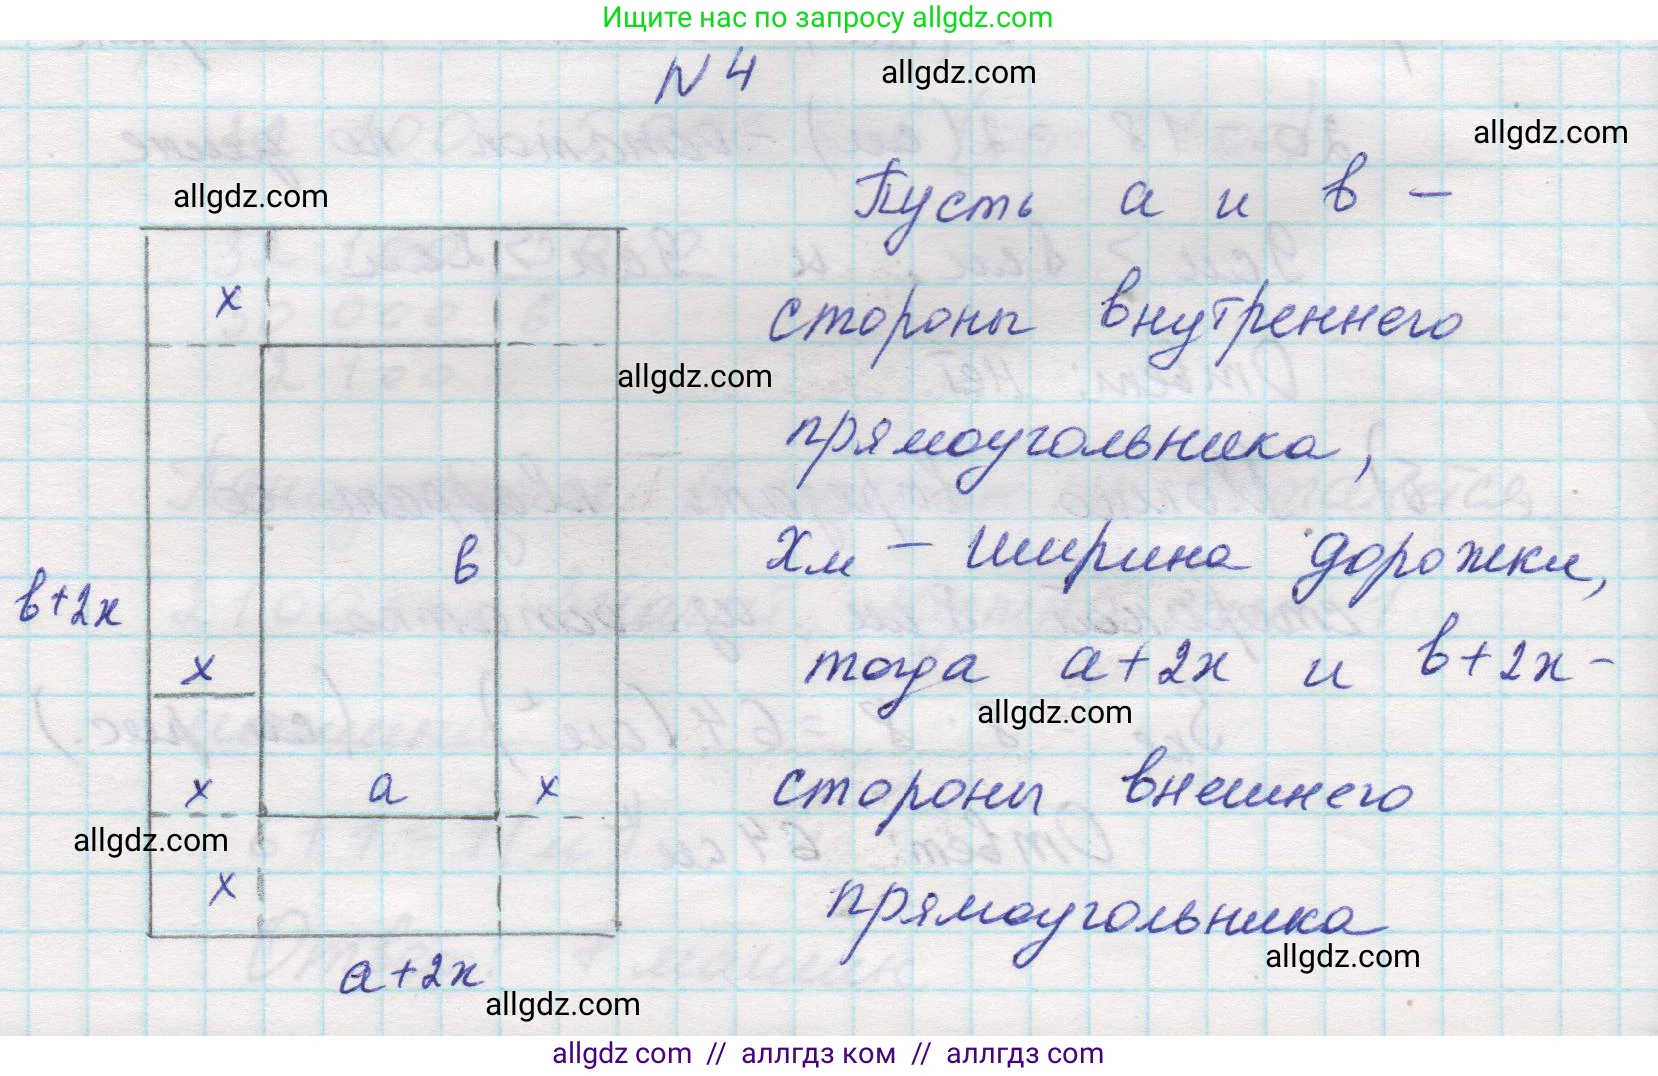 Ищите нас по запросу allgdz.com
N 4
allgdz.com
allgdz.com
allgdz.com
Пусть а и в –
стороны внутреннего
allgdz.com
прямоугольника,
х м – ширина дорожки,
тогда а+2х и в+2х –
allgdz.com
стороны внешнего
прямоугольника
allgdz.com
х
в
в+2х
х
х
а
х
allgdz.com
х
а+2х
allgdz.com
allgdz.com // аллгдз ком // аллгдз com